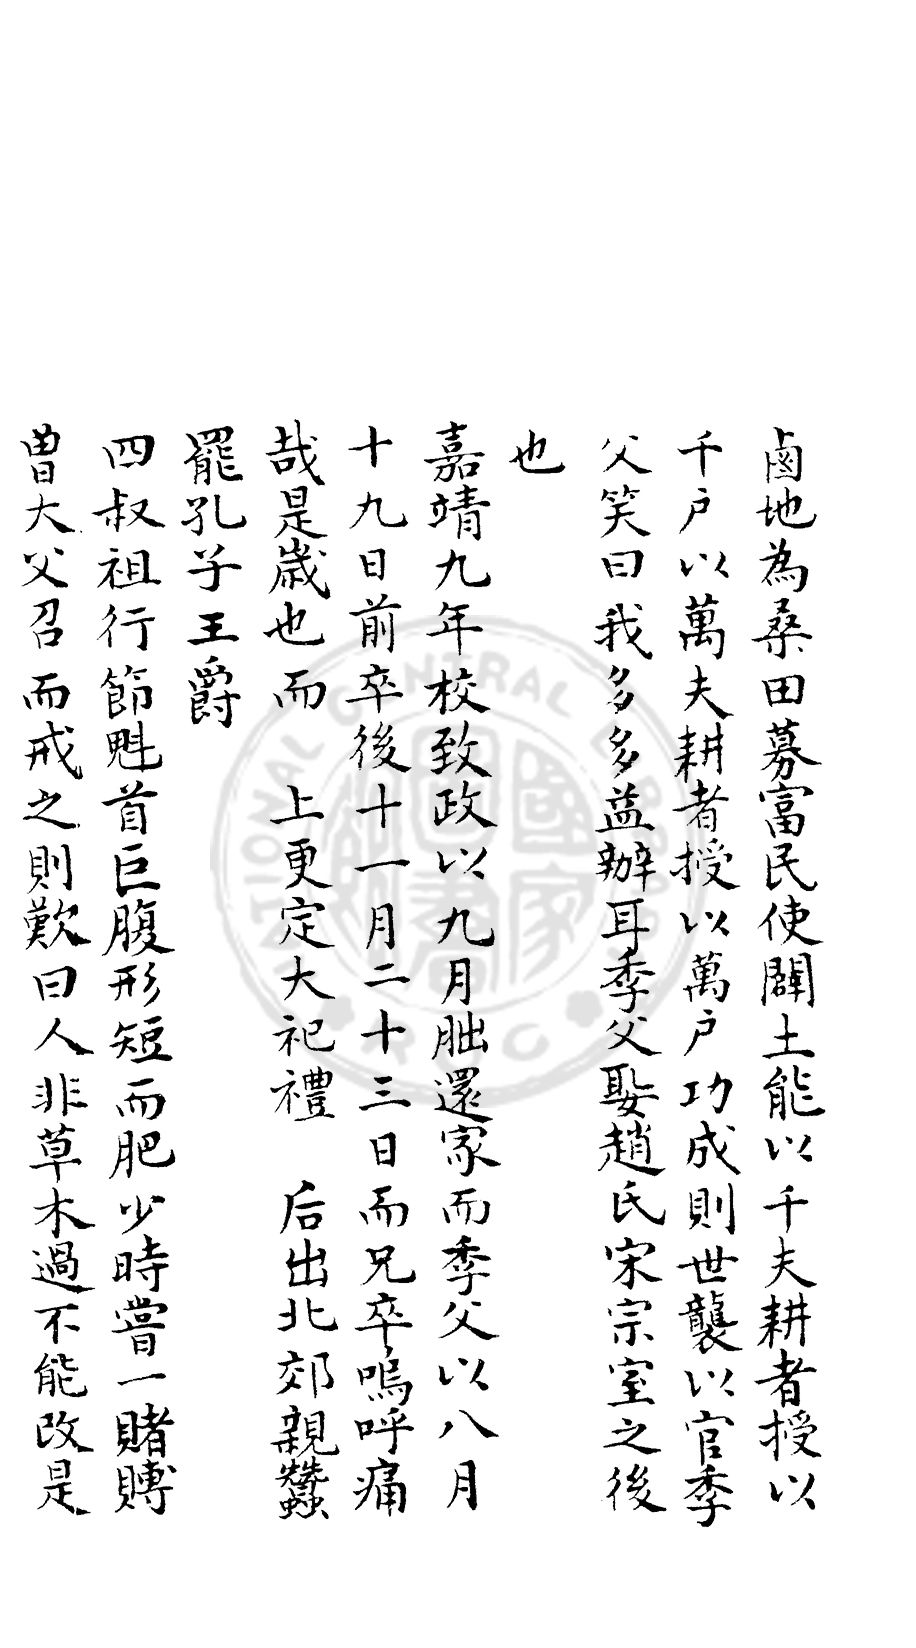 鹵地為桑田募富民使闢土能以千夫耕者授以
千户以萬夫耕者授以萬户功成則世襲以官季
父笑曰我多多益辦耳季父娶趙氏宋宗室之後
也
嘉靖九年校致政以九月朏還家而季父以八月
十九日前卒後十一月二十三日而兄卒嗚呼痛
哉是歲也而 上更定大祀禮 后出北郊親蠶
罷孔子王爵
四叔祖行節魁首巨腹形短而肥少時嘗一賭賻
曽大父召而戒之則歎曰人非草木過不能改是
NATIONAL CENTRAL LIBRARY
R.O.C
國家圖書館